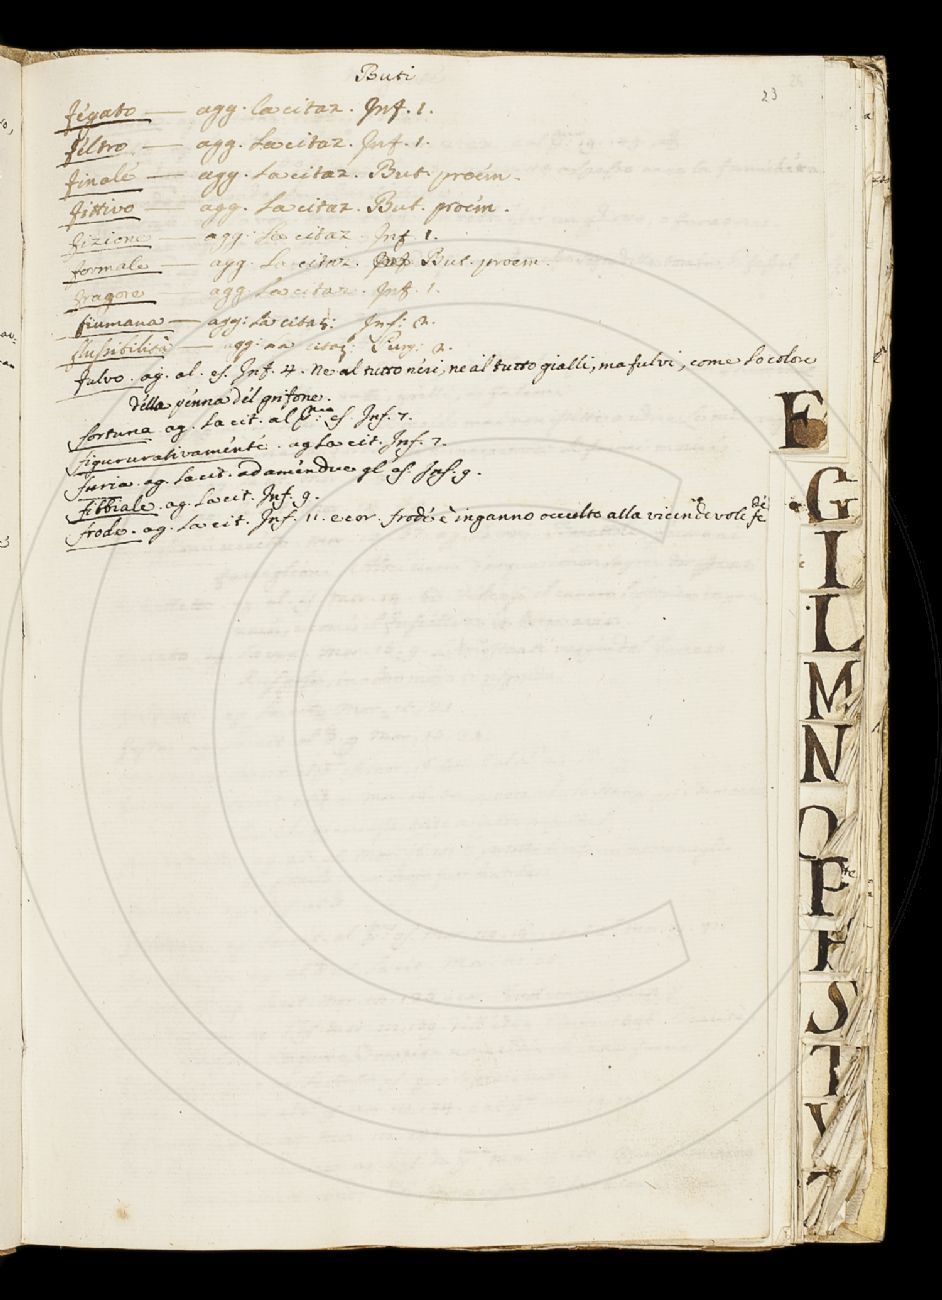 Buti
23
fégato — agg. la citaz. Inf. 1.
féltro — agg. La citaz. Inf. 1.
finalé — agg. La citaz. But. proém.
fittivo — agg. La citaz. But. proém.
fizione — agg. La citaz. Inf. 1.
formale — agg. La citaz. But. proém.
fragore — agg. La citaz. Inf. 1.
fiumana — agg: La citaz: Inf: 2.
flussibilità — agg: la citaz: Purg: 2.
fulvo. ag. al. es. Inf. 4. Ne al tutto néri, ne al tutto gialli, ma fulvi, come lo colore
délla pénna dél grifone.
fortuna ag. La cit. al es. Inf. 7.
figururativaménté. ag La cit. Inf. 7.
furia. ag. La cit. ad améndue gl es. Inf. 9.
Fibbiale. ag. La cit. Inf. 9.
frode. ag. La cit. Inf. 11. e cor. frodé è inganno occulto alla vicindevole
dé
fe
F
G
I
L
M
N
O
P
S
T
V